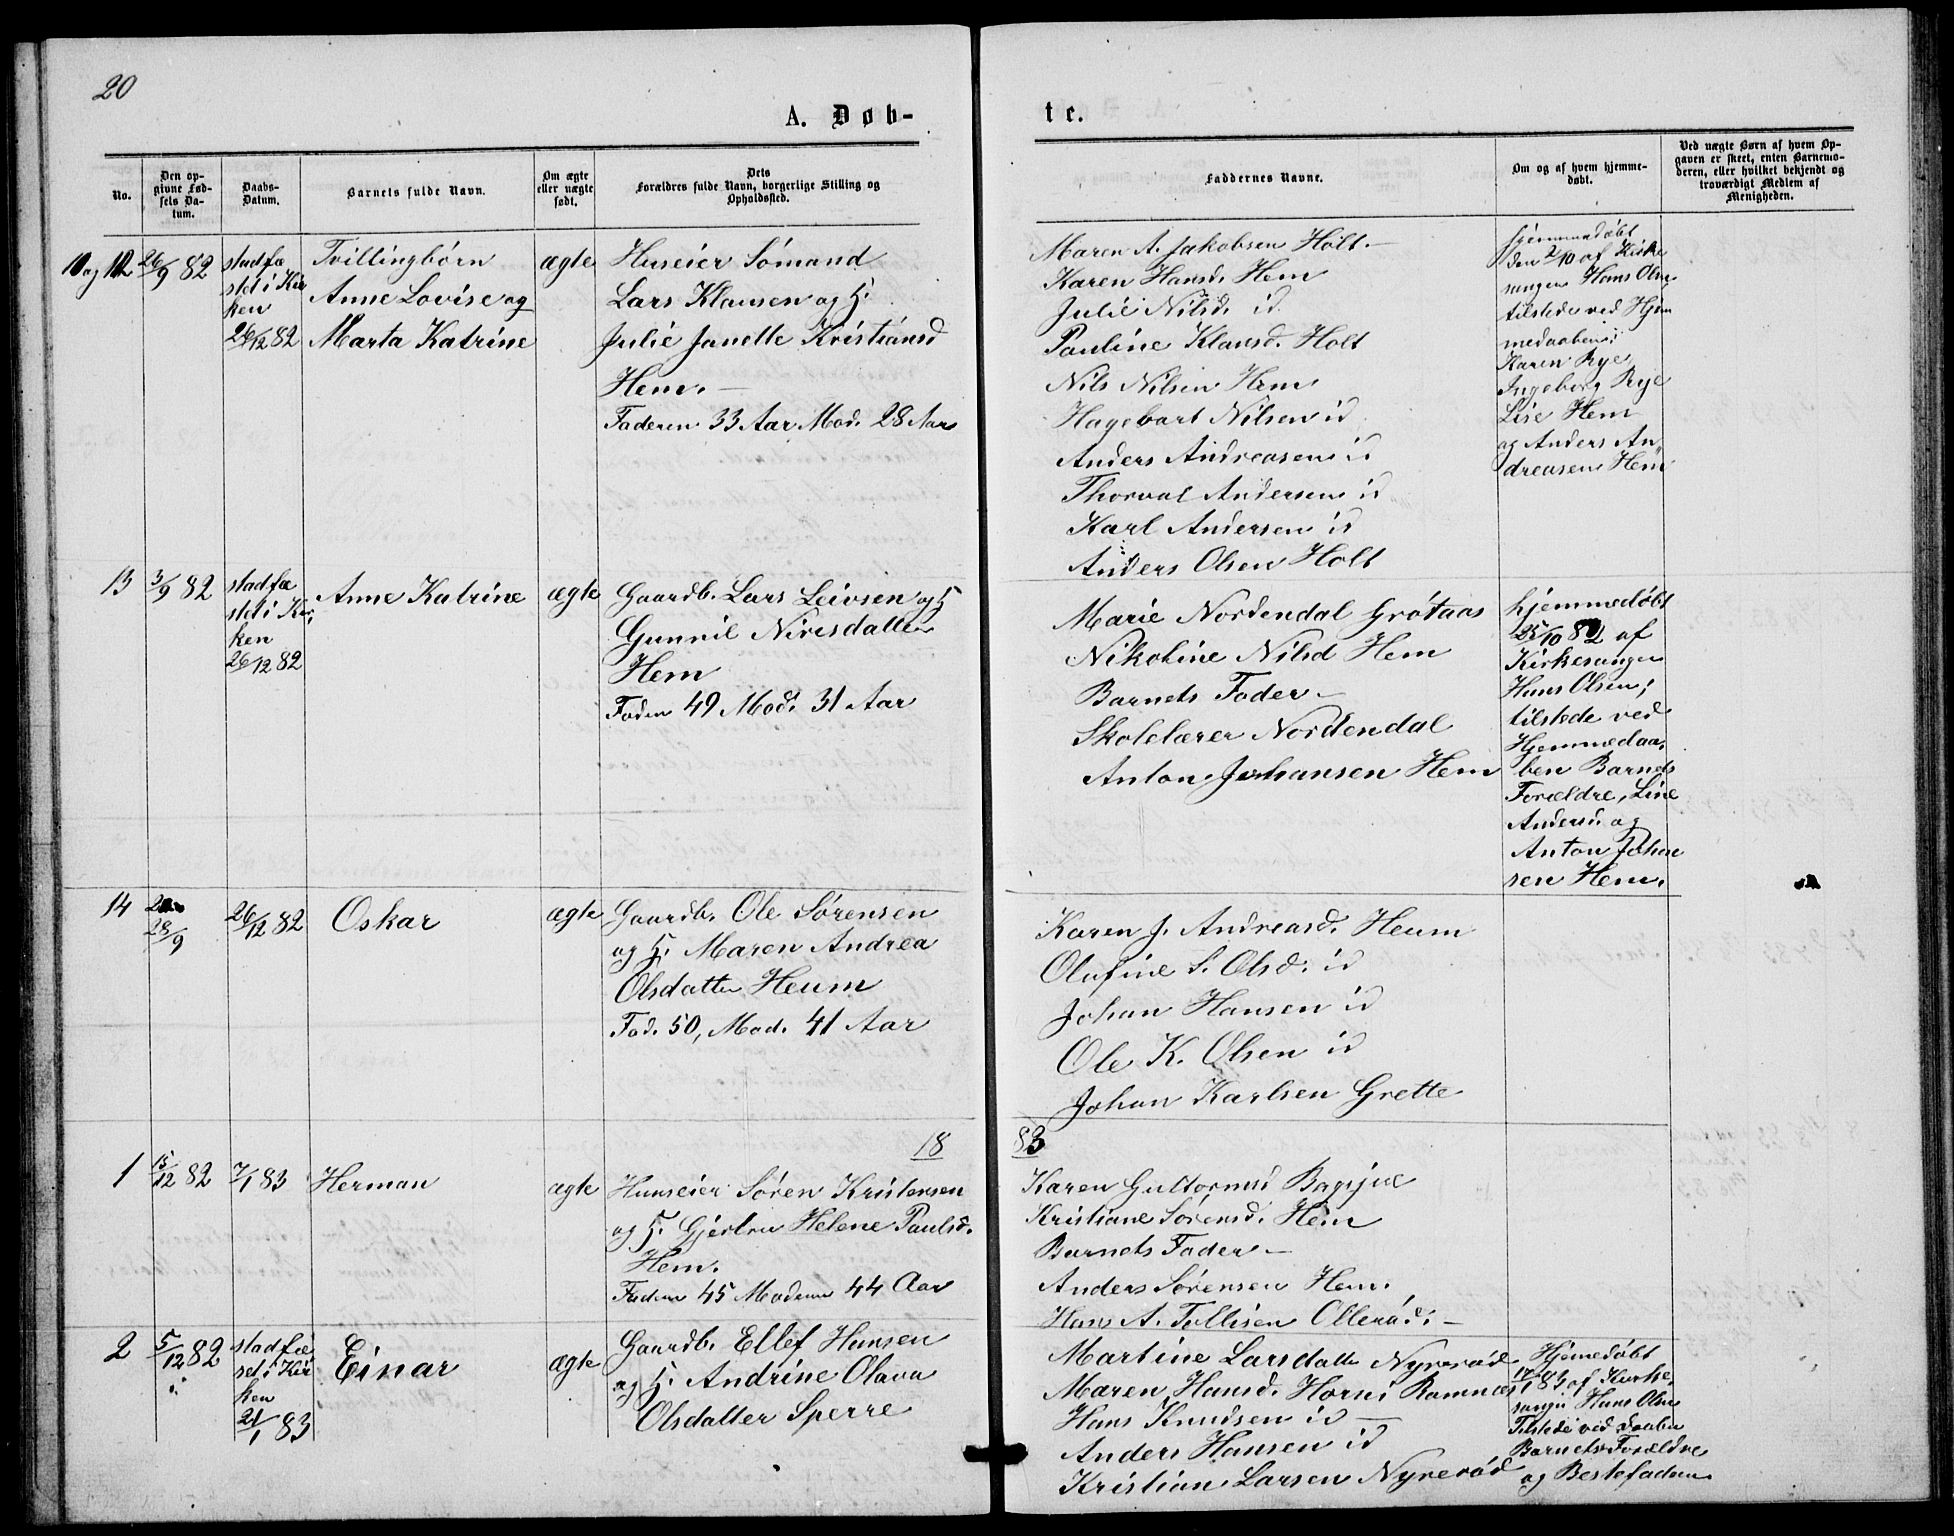 20
A. Døb-
te.
No.
Den op-
givne Fød-
sels Da-
tum.
Daabs-
Datum.
Barnets fulde Navn.
Om ægte
eller uægte
født.
Dets
Forældres fulde Navn, borgerlige Stilling og
Opholdssted.
Faddernes Navne.
Om og af hvem hjemme-
døbt.
Ved uægte Børn af hvem Op-
gaven er skeet, enten Barnemo-
deren, eller hvilket bekjendt og
troværdigt Medlem af
Menigheden.
og 12
26/9 82
stadfæ
stet i Kir
ken
26/12 82
Tvillingbørn
Anne Lovise og
Marta Katrine
ægte
Huseier Sømand
Lars Klausen og H.
Julie Janette Kristiansd
Hem.
Faderen 33 Aar Mod. 28 Aar
Maren A. Jakobsen Holt
Karen Hansd. Hem
Julie Nilsd. id
Pauline Klausd. Holt
Nils Nilsen Hem
Hagebart Nilsen id
Anders Andreasen id
Thorval Andersen id
Karl Andersen id
Anders Olsen Holt
hjemmedøbt
den 2/10 af Kirke
sanger Hans Olsen
tilstede ved Hjem
medaaben:
Karen Rye
Ingeborg Rye
Lise Hem
og Anders An
dreasen Hem
13
3/9 82
stadfæ
stet i Kir
ken
26/12 82
Anne Katrine
ægte
Gaardb. Lars Leivsen og H
Gunnil Nirisdatter
Hem
Faden 49 Mod. 31 Aar
Marie Nordendal Grøtaas
Nikoline Nilsd Hem
Barnets Fader
Skolelærer Nordendal
Anton Johansen Hem
hjemmedøbt
25/10 82 af
Kirkesanger
Hans Olsen;
tilstede ved
Hjemmedaa,
ben Barnets
Forældre, Line
Andersd. og
Anton Johan
sen Hem.
14
28/9
26/12 82
Oskar
ægte
Gaardb. Ole Sørensen
og H. Maren Andrea
Olsdatter Heum
Fad. 50, Mod. 41 Aar
Karen J. Andreasd. Heum
Olufine S. Olsd. id
Johan Hansen id
Ole K. Olsen id
Johan Karlsen Grette
18
83
1
15/12 82
7/1 83
Herman
ægte
Huuseier Søren Kristensen
og H. Gjertru Helene Paulsd.
Hem.
Faderen 45 Moderen 44 Aar
Karen Guttormsd
Kristiane Sørensd. Hem
Barnets Fader
Anders Sørensen Hem.
Hans A. Tollisen Ollerød.
2
5/12 82
stadfæ
set i Kir
ken
21/1 83
Einar
ægte
Gaardb. Ellef Hansen
og H. Andrine Olava
Olsdatter Sperre
Martine Larsdatter Nyrerød
Maren Hansd. Hornes Ramnes
Hans Knudsen id
Anders Hansen id
Kristian Larsen Nyrerød
Hjemedøbt
83 af Kirke,
sanger Hans Olsen
Tilstede ved Daaben
Barnets Forældre
og Bestefaderen